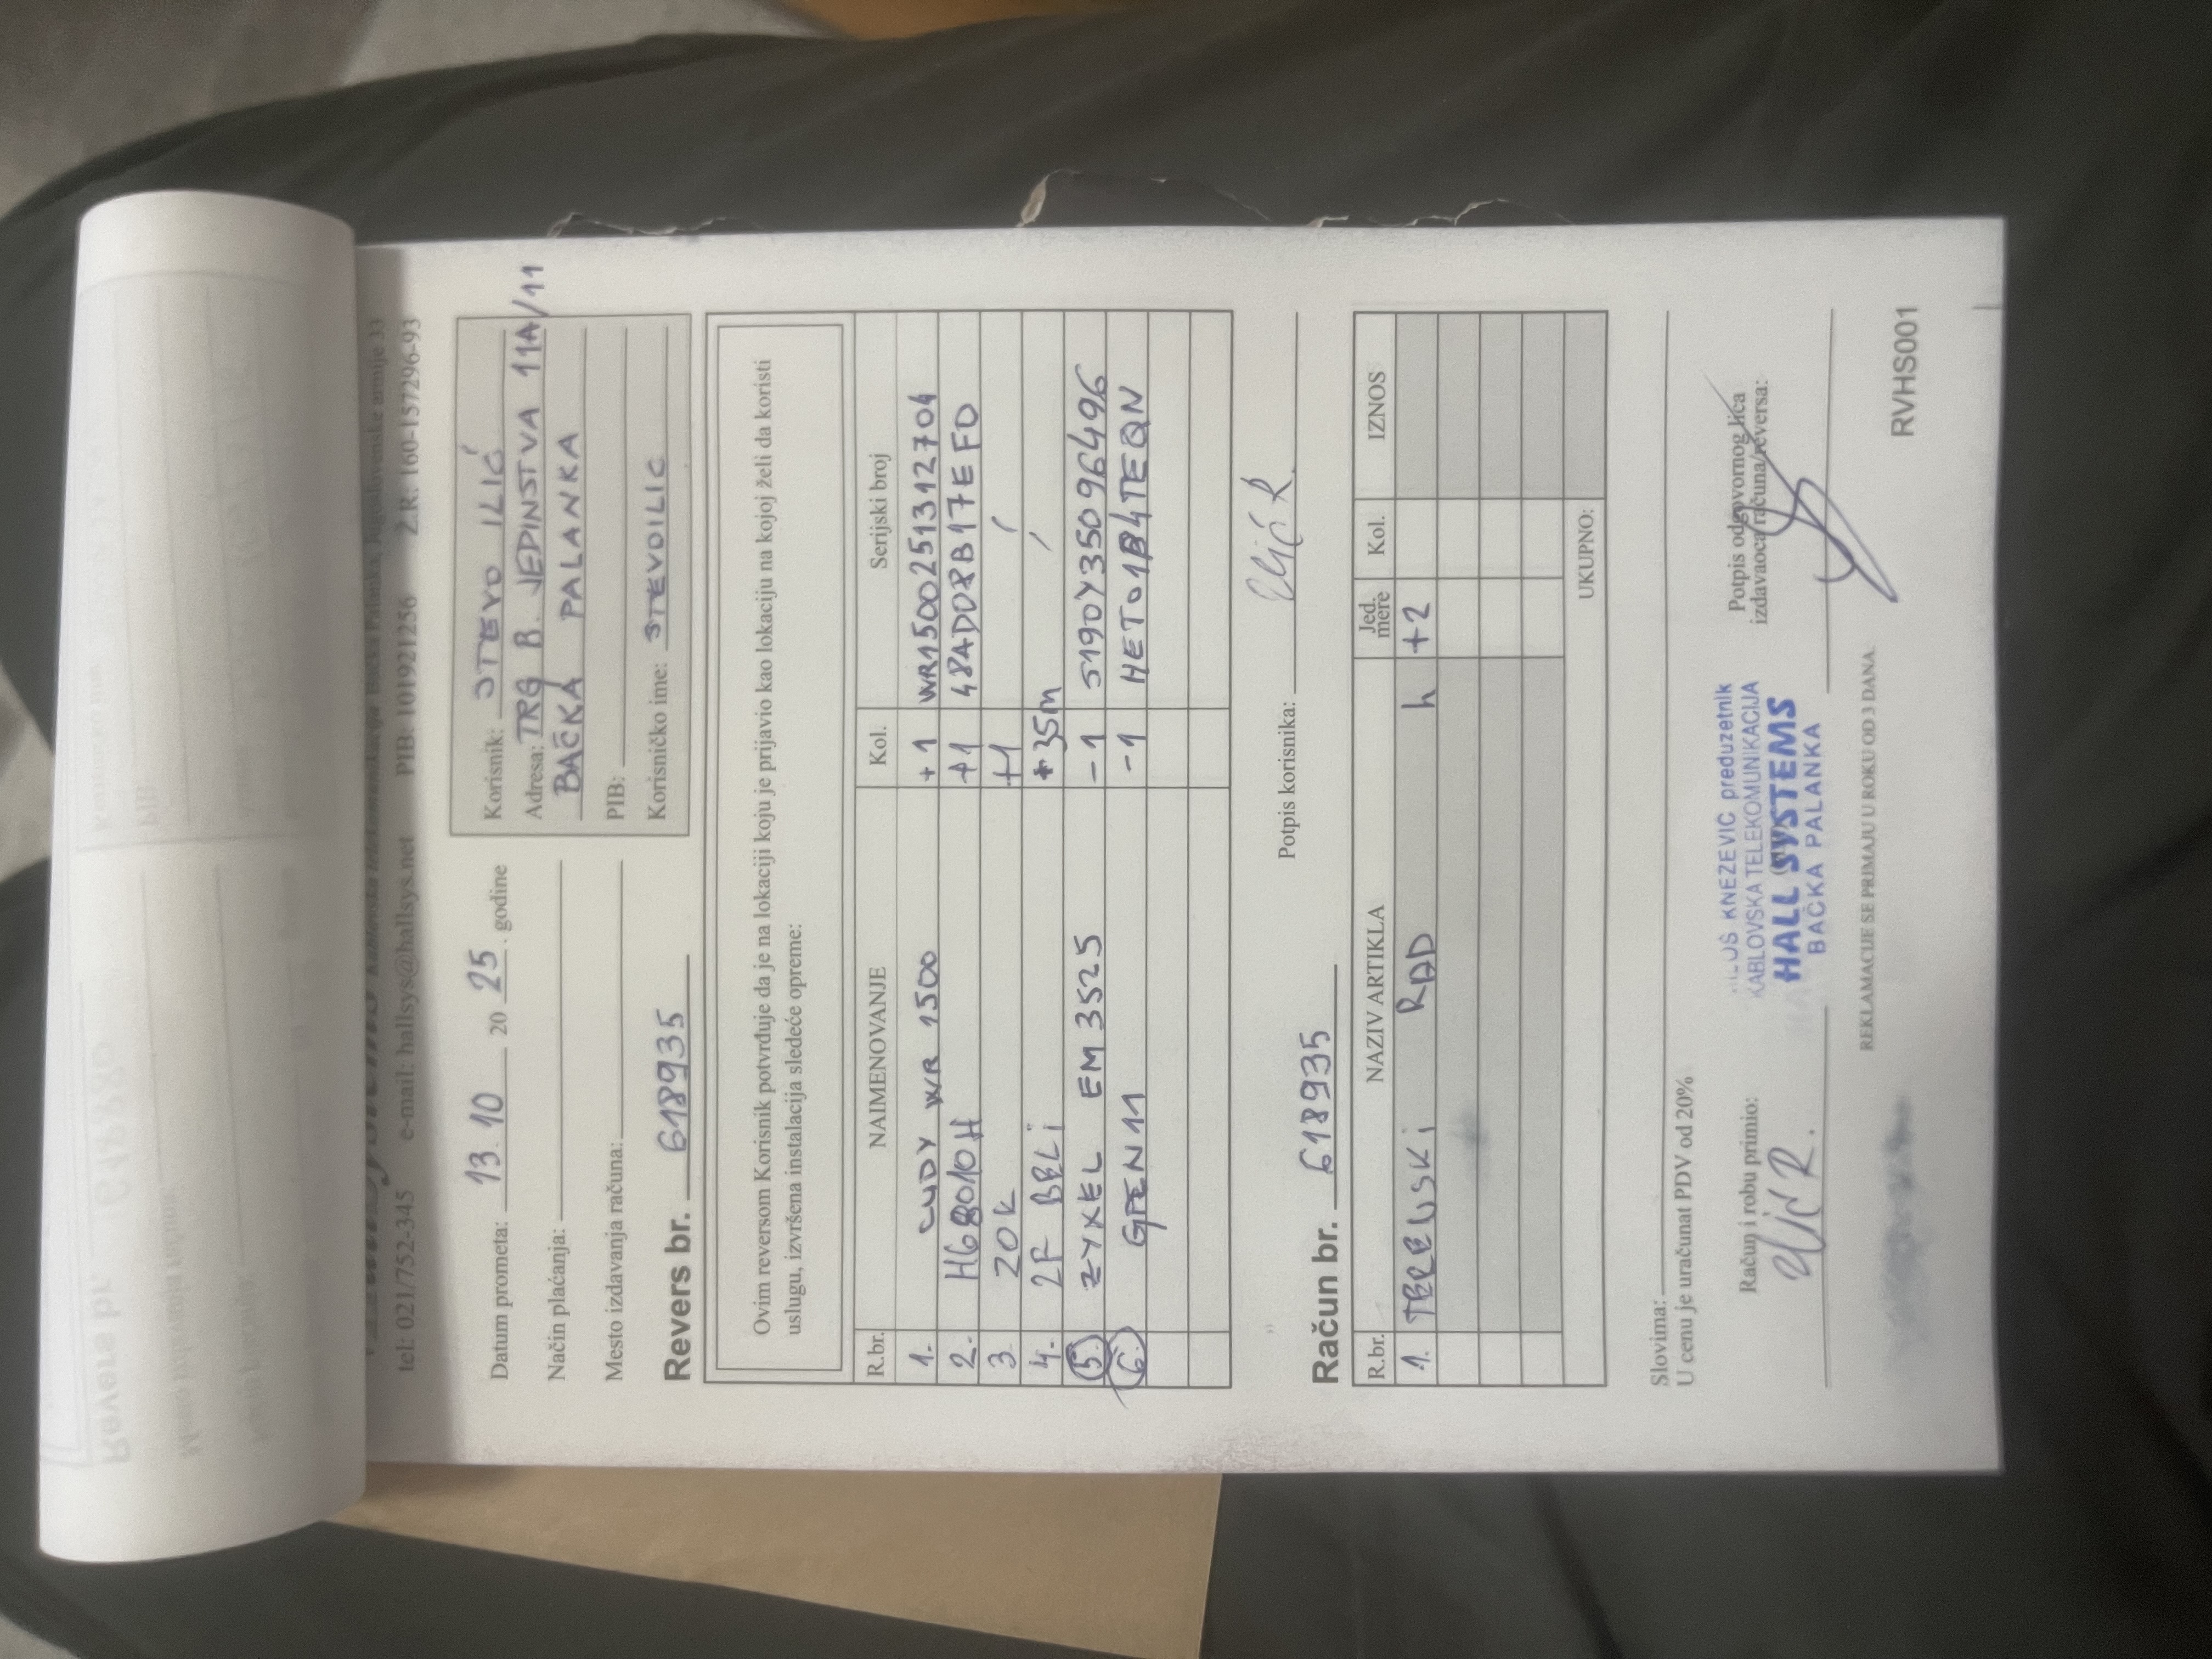 tel: 021/752-345 e-mail: hallsys@hallsys.net PIB: 101921256 Ž.R. 160-157296-93
Datum prometa: 13.10 20 25. godine
Način plaćanja:
Mesto izdavanja računa:
Korisnik: STEVO ILIĆ
Adresa: TRG B. JEDINSTVA 11A/11
BAČKA PALANKA
PIB:
Korisničko ime: STEVOILIC
Revers br. 618935
Ovim reversom Korisnik potvrđuje da je na lokaciji koju je prijavio kao lokaciju na kojoj želi da koristi
uslugu, izvršena instalacija sledeće opreme:
R.br. NAIMENOVANJE Kol. Serijski broj
1. CUDY WR 1500 +1 WR1500251312704
2. HG8010H +1 48AD08B17EFD
3 ZOK +1 /
4. 2F BELI +35m /
5. ZYXEL EM3525 -1 S190Y35096496
6. GPEN11 -1
Potpis korisnika: Ilić R.
Račun br. 618935
R.br. NAZIV ARTIKLA Jed. mere Kol. IZNOS
1. TERENSKI RAD h +2
UKUPNO:
Slovima:
U cenu je uračunat PDV od 20%
Račun i robu primio:
Ilić R.
KNEZEVIC preduzetnik
KABLOVSKA TELEKOMUNIKACIJA
HALL SYSTEMS
BAČKA PALANKA
Potpis odgovornog lica
izdavaoca računa/reversa:
REKLAMACIJE SE PRIMAJU U ROKU OD 3 DANA.
RVHS001